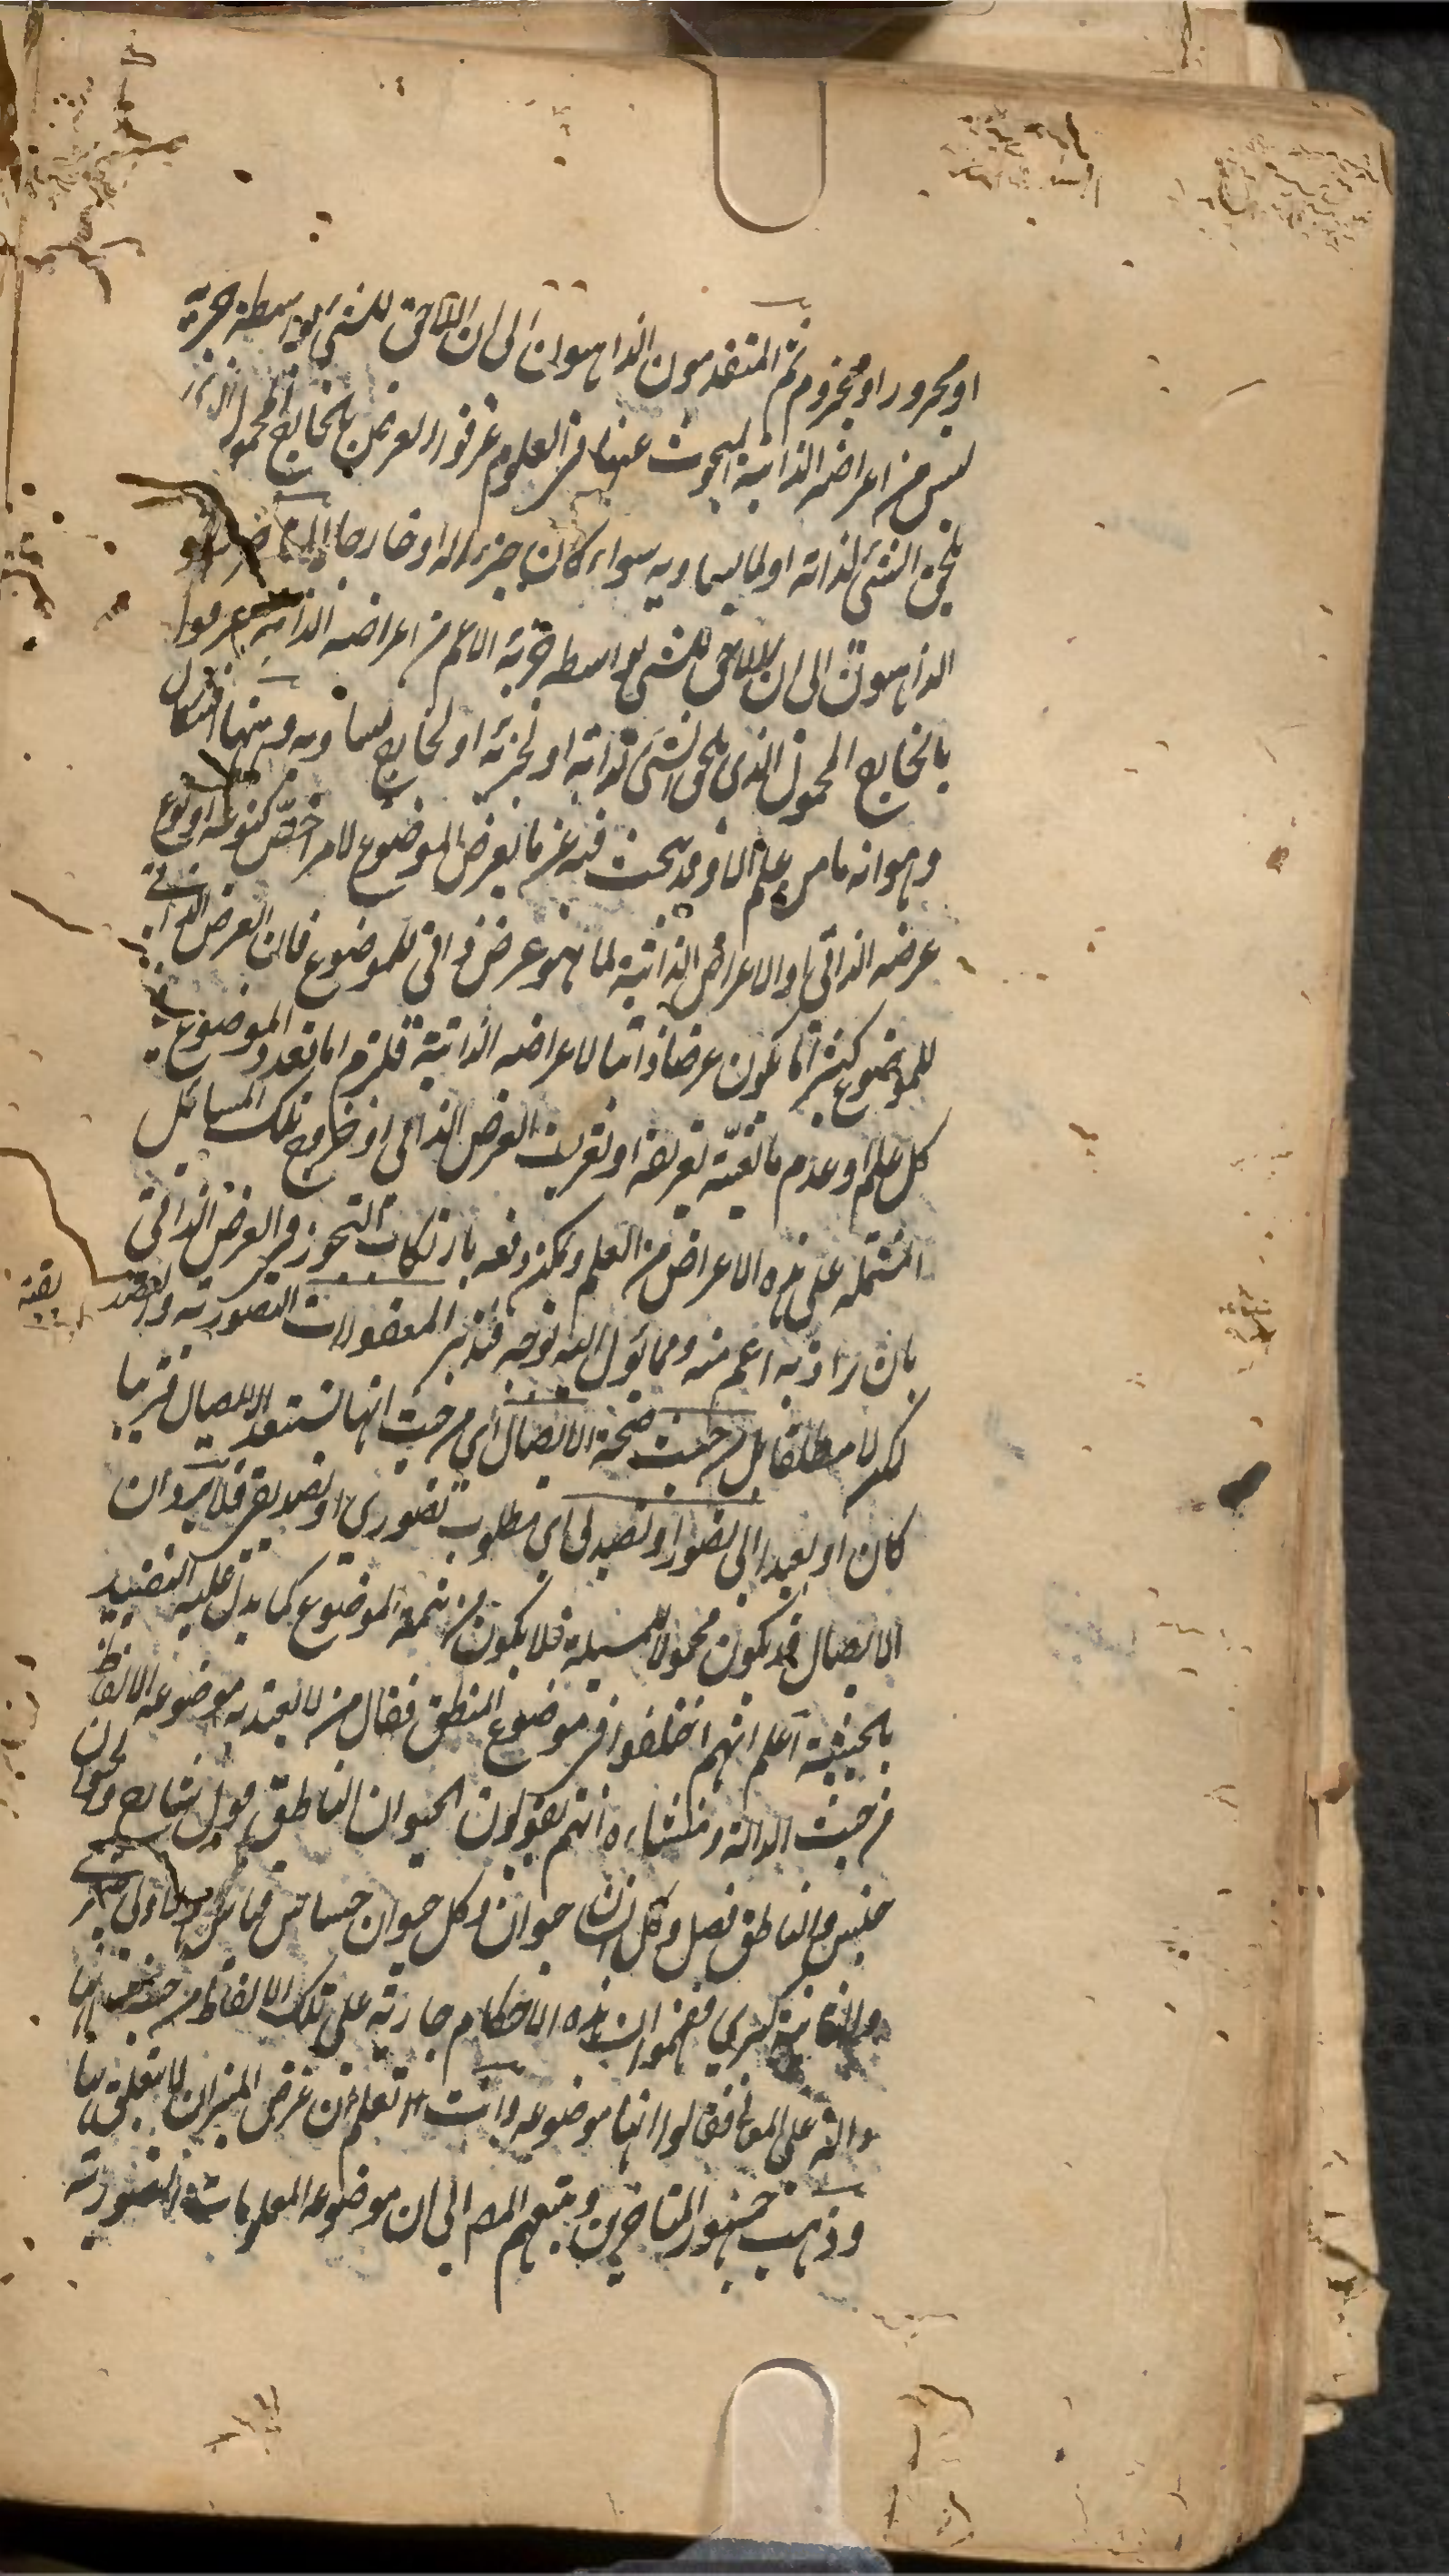 او مجرور او مجزوم ثم المتقدمون الذاهبون الى ان اللاحق للشئ بواسطة جزئه
ليس من اعراضه الذاتية المبحوث عنها في العلوم عرفوا العرض بالخارج المحمول الذى
يلحق الشئ لذاته او لما يساويه سواء كان جزءا له او خارجا
الذاهبون الى ان اللاحق للشئ بواسطة جزئه الاعم من اعراضه الذاتية عرفوا
بالخارج المحمول الذى يلحق الشئ لذاته او لجزئه او لخارج يساويه وههنا اشكال
وهو انه ما من علم الا وقد يبحث فيه عن ما يعرض الموضوع لامر اخص كنوعه او نوع
عرضه الذاتى والاعراض الذاتية لما هو عرض ذاتى للموضوع فان العرض الذاتى
للموضوع كثيرا ما يكون عرضا ذاتيا لاعراضه الذاتية فلزم اما تعدد الموضوع فى
كل علم او عدم مانعية تعريفه او تعريف العرض الذاتى او خروج تلك المسائل
المشتملة على هذه الاعراض من العلم ويمكن دفعه بارتكاب التجوز فى العرض الذاتى
بان يراد به اعم منه ومما يؤل اليه بوجه فتدبر المعقولات التصورية والتصديقية
لكن لا مطلقا بل من حيث صحة الايصال اى من حيث انها تستعد للايصال قريبا
كان او بعيدا الى تصور او تصديق اى مطلوب تصورى او تصديقى فلا يرد ان
الايصال قد يكون محمولا للمسئلة فلا يكون من تتمة الموضوع كما يدل عليه التقييد
بالحيثية اعلم انهم اختلفوا فى موضوع المنطق فقال من لا يعتد به موضوعه الالفاظ
من حيث الدلالة ومنشاءه انهم يقولون الحيوان الناطق قول شارح والحيوان
جنس والناطق فصل وكل انسان حيوان وكل حيوان حساس قياس والاولى صغرى
والثانية كبرى فزعموا ان هذه الاحكام جارية على تلك الالفاظ من حيث انها
دالة على المعانى فقالوا انها موضوعه وانت تعلم ان غرض الميزان لا يتعلق بها
وذهب جمهور المتاخرين وتبعهم المص الى ان موضوعه المعلومات التصورية